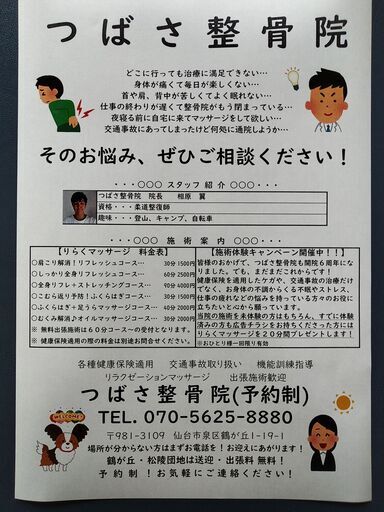 つばさ整骨院
どこに行っても治療に満足できない…
身体が痛くて毎日が楽しくない…
首や肩、背中が苦しくてよく眠れない…
仕事の終わりが遅くて整骨院がもう閉まっている…
夜寝る前に自宅に来てマッサージをして欲しい…
交通事故にあってしまったけど何処に通院しようか…
そのお悩み、ぜひご相談ください！
・・・〇〇〇 スタッフ紹介 〇〇〇・・・
つばさ整骨院 院長 相原 翼
資格・・・柔道整復師
趣味・・・登山、キャンプ、自転車
・・・〇〇〇 施術案内 〇〇〇・・・
【りらくマッサージ 料金表】
〇肩こり解消！リフレッシュコース… 30分1500円
〇しっかり全身リフレッシュコース… 60分2500円
〇全身リフレ＋ストレッチングコース… 90分4000円
〇こむら返り予防！ふくらはぎコース… 30分1500円
〇ふくらはぎ＋足うらマッサージコース… 40分2000円
〇むくみ解消♪オイルマッサージコース… 30分2000円
※ 無料出張施術は６０分コース～の受付となります。
※ 健康保険適用の際の料金は別途お問合せください。
【施術体験キャンペーン開催中！！】
皆様のおかげで、つばさ整骨院も開院６周年になり
ました。でも、まだまだこれからです！
健康保険を適用したケガや、交通事故の治療だけ
でなく、お身体の不調からくる不眠やストレス、
仕事の疲れなどの悩みを持っている方々のお役に
立ちたいと心から願っています。
当院の施術を未体験の方はもちろん、すでに体験
済みの方も広告チラシをお持ちくださった方には
りらくマッサージを２０分間プレゼントします！
※おひとり様一回限り有効
各種健康保険適用 交通事故取り扱い 機能訓練指導
リラクゼーションマッサージ 出張施術歓迎
つばさ整骨院(予約制)
TEL. 070-5625-8880
〒981-3109 仙台市泉区鶴が丘1-19-1
場所が分からない方はまずお電話を！お迎えにあがります！
鶴が丘・松陵団地は送迎・出張料 無料！
予約制！お気軽にご連絡ください！
WELCOME!